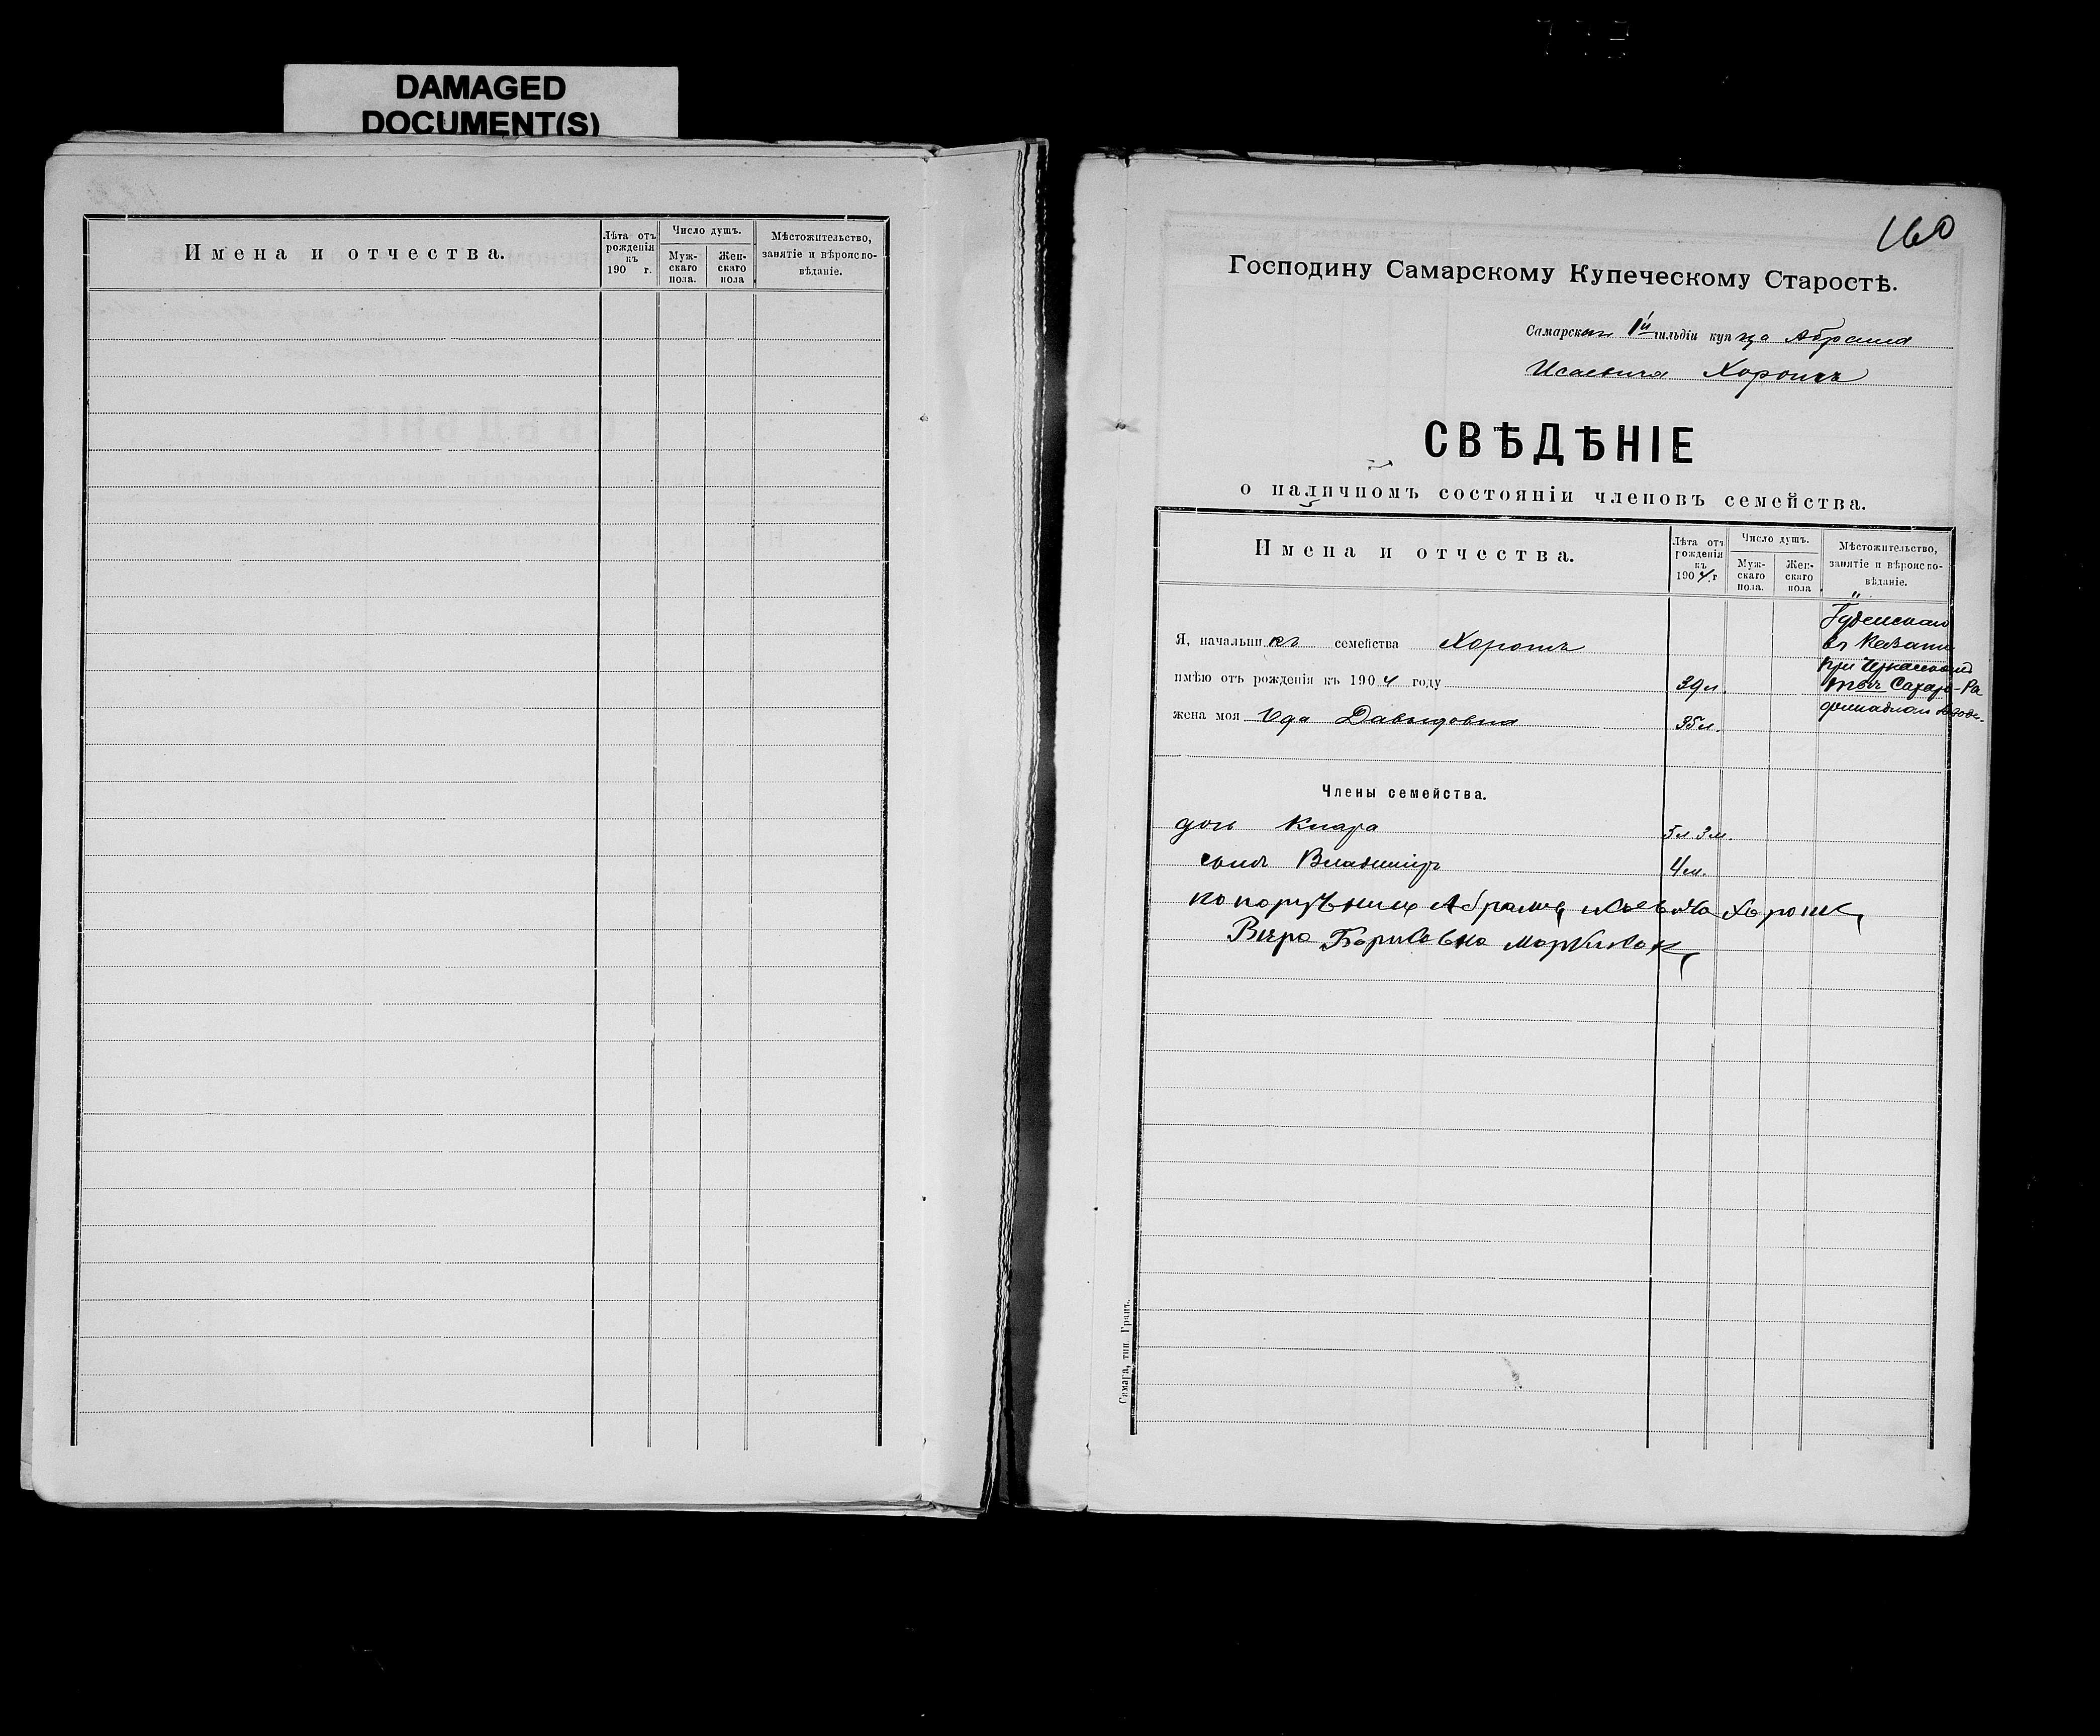 DAMAGED
DOCUMENT(S)
Имена и отчества.
Лѣта отъ
рожденія
къ
190 г.
Число душъ.
Муж-
скаго
пола.
Жен-
скаго
пола
Мѣстожительство,
занятіе и вѣроиспо-
вѣданіе.
160
Господину Самарскому Купеческому Старостѣ.
Самарскаго 1й гильдіи купца Абрама
Исаевича Хорошъ
СВѢДѢНІЕ
о наличномъ состояніи членовъ семейства.
Имена и отчества.
Лѣта отъ
рожденія
къ
1904 г
Число душъ.
Муж-
скаго
пола.
Жен-
скаго
пола
Мѣстожительство,
занятіе и вѣроиспо-
вѣданіе.
Іудейскаго
Я, начальникъ семейства Хорошъ
при Черкасскомъ
имѣю отъ рожденія къ 1904 году 39 л.
Сахаро-Ра
жена моя Ода Давыдовна 35 л.
Члены семейства.
дочь Клара 5 л 3 м.
сынъ Владиміръ 4 м.
Абрама Хорошъ
Вѣра Борисовна
Самара, тип. Гранъ.